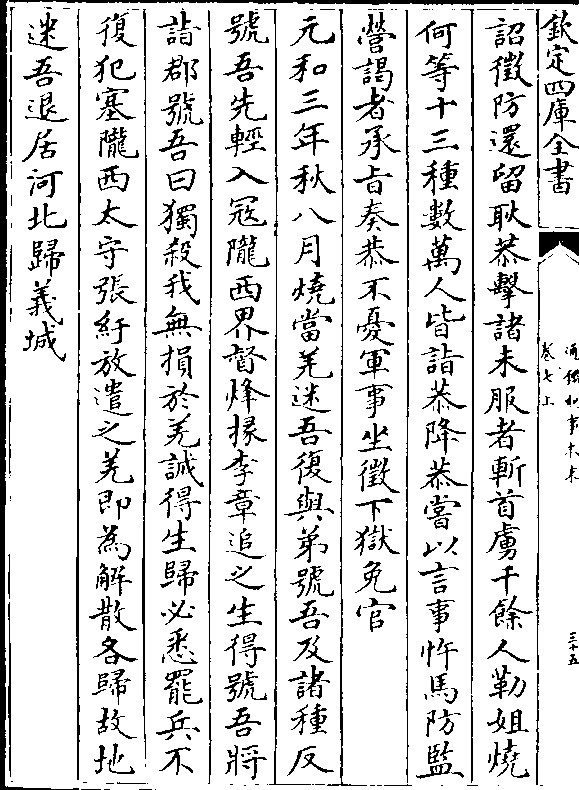 欽定四庫全書
通鑑紀事本末
卷七上
三十五
詔徵防還留耿恭擊諸未服者斬首虜千餘人勒姐燒
何等十三種數萬人皆詣恭降恭嘗以言事忤馬防監
營謁者承旨奏恭不憂軍事坐徵下獄免官
元和三年秋八月燒當羌迷吾復與弟號吾及諸種反
號吾先輕入冦隴西界督烽掾李章追之生得號吾將
詣郡號吾曰獨殺我無損於羌誠得生歸必悉罷兵不
復犯塞隴西太守張紆放遣之羌即為解散各歸故地
迷吾退居河北歸義城